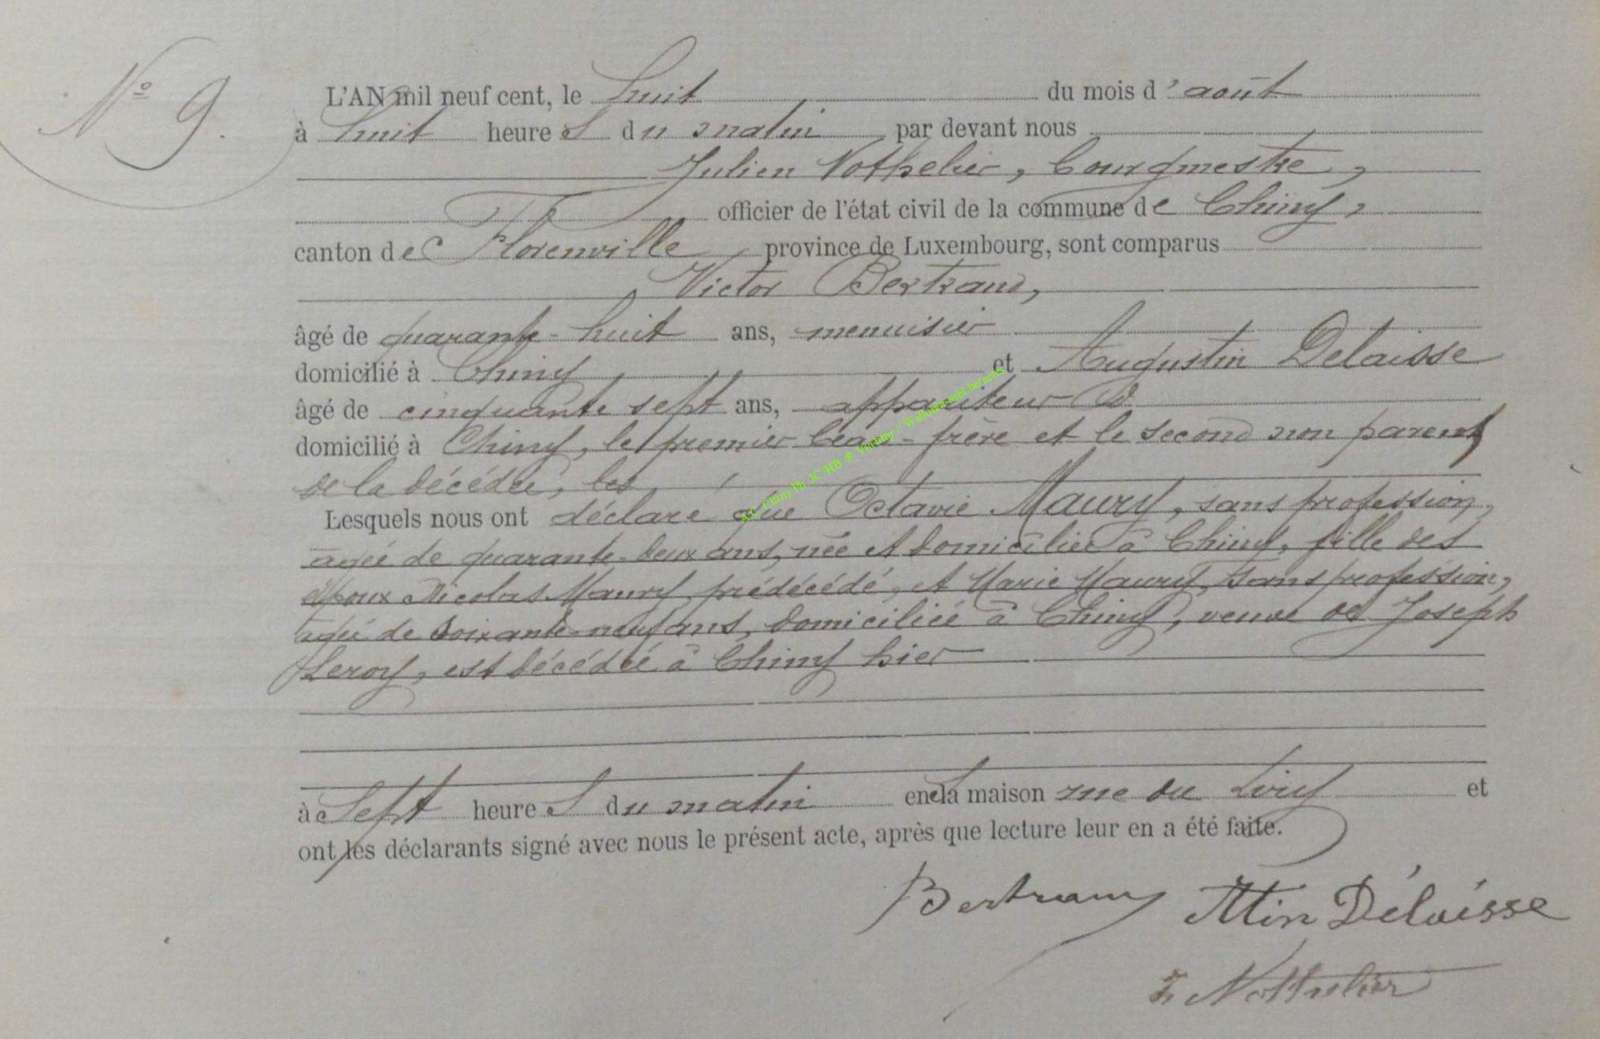 N° 9.
L'AN mil neuf cent, le huit du mois d'août
à huit heures du matin par devant nous
Julien Nothelier, bourgmestre,
officier de l'état civil de la commune de Chiny,
canton de Florenville province de Luxembourg, sont comparus
Victor Bertrand,
âgé de quarante-huit ans, menuisier
domicilié à Chiny et Augustin Delaisse
âgé de cinquante sept ans, appariteur
domicilié à Chiny, le premier beau-frère et le second non parent
de la décédée, les
Lesquels nous ont déclaré que Octavie Maury, sans profession,
âgée de quarante-deux ans, née et domiciliée à Chiny, fille des
époux Nicolas Maury, prédécédé, et Marie Maury, sans profession,
âgée de soixante-neuf ans, domiciliée à Chiny, veuve de Joseph
Leroy, est décédée à Chiny hier
à sept heures du matin en sa maison rue du
et
ont les déclarants signé avec nous le présent acte, après que lecture leur en a été faite.
Bertrand Attin Délaisse
Nothelier